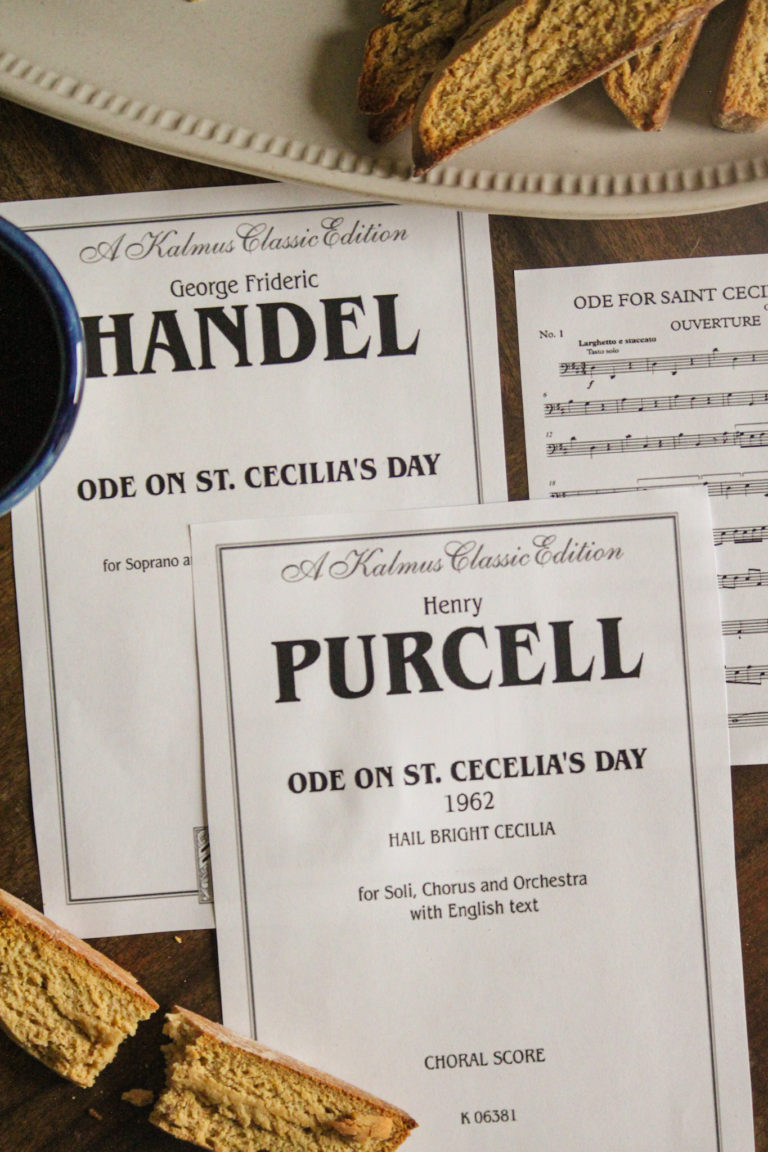 A Kalmus Classic Edition
George Frideric
HANDEL
ODE ON ST. CECILIA'S DAY
for Soprano
ODE FOR SAINT
OUVERTURE
No. 1
Larghetto e staccato
Tasto solo
f
6
12
18
A Kalmus Classic Edition
Henry
PURCELL
ODE ON ST. CECELIA'S DAY
1962
HAIL BRIGHT CECILIA
for Soli, Chorus and Orchestra
with English text
CHORAL SCORE
K 06381